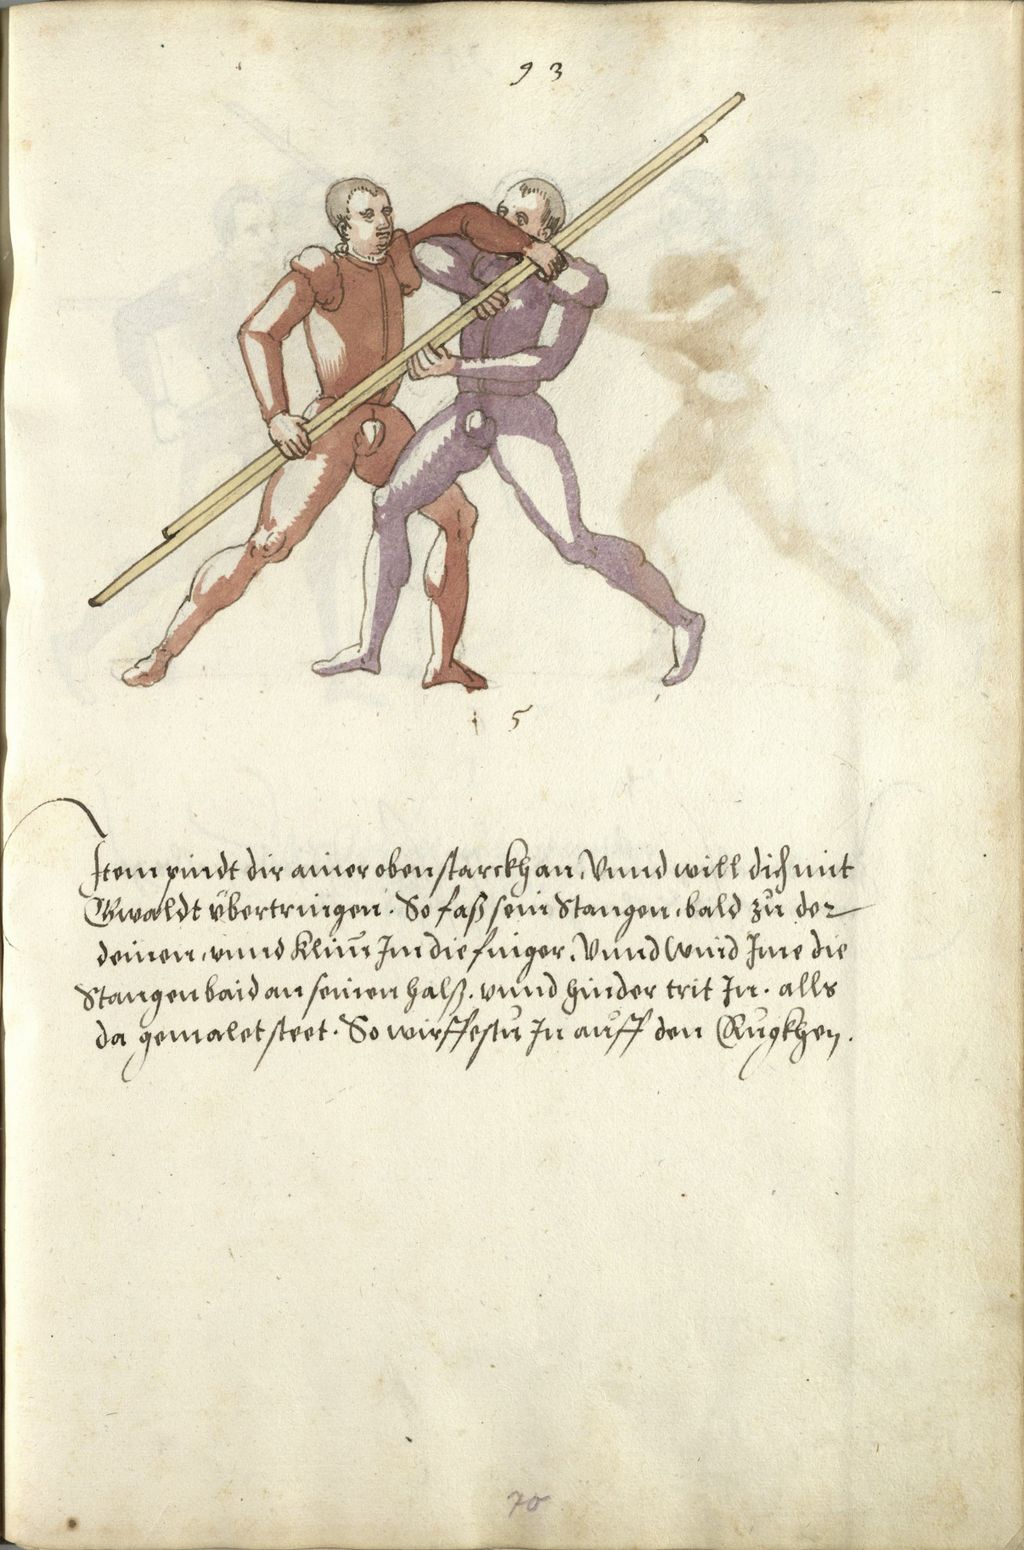 93
i 5
Item pindt dir ainer oben starckh an, Vnnd will dich mit
Gwaldt v̈bertringen. So faß sein Stangen, bald zu̇ der
deinen, vnnd klim̄ Im die finger, Vnnd Wind Ime die
Stangen baid an seinen halß, vnnd hinder trit In. alls
da gemalet steet. So wirffestu̇ In au̇ff den Ru̇gkhen.
70